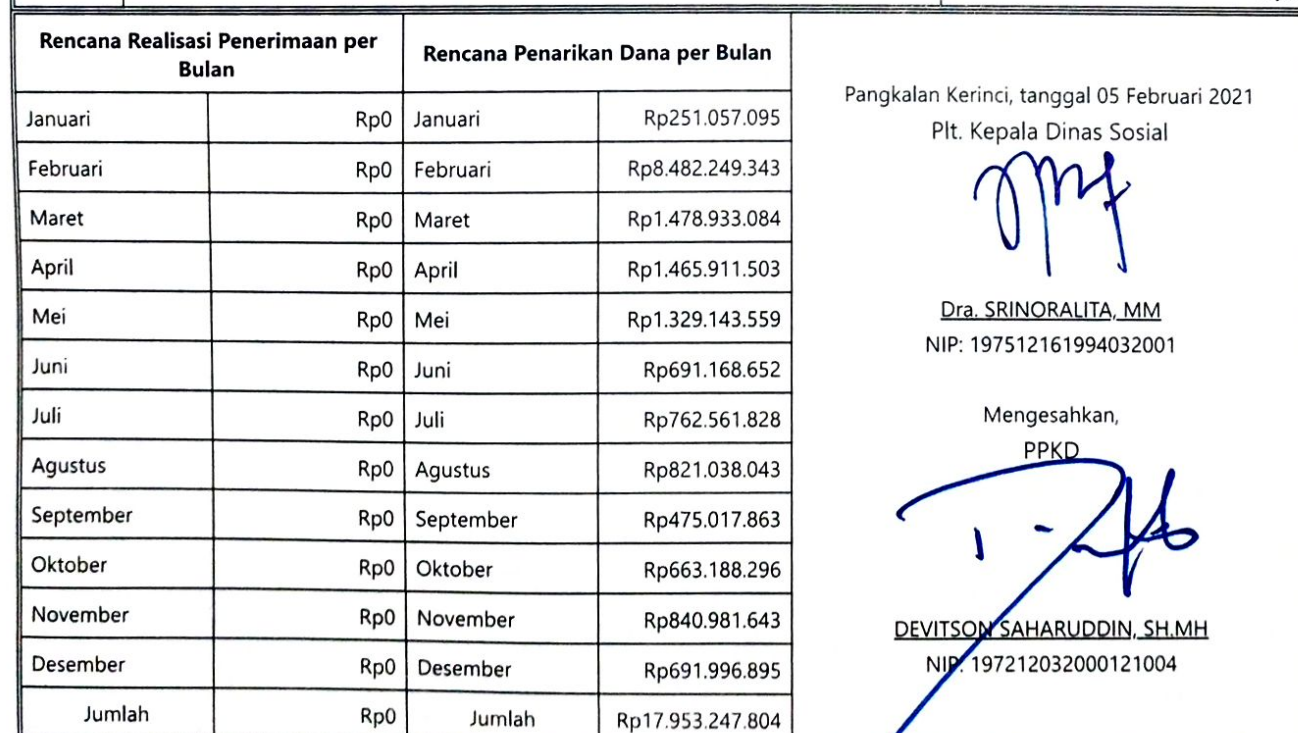 Rencana Realisasi Penerimaan per
Bulan
Rencana Penarikan Dana per Bulan
Januari Rp0 Januari Rp251.057.095
Februari Rp0 Februari Rp8.482.249.343
Maret Rp0 Maret Rp1.478.933.084
April Rp0 April Rp1.465.911.503
Mei Rp0 Mei Rp1.329.143.559
Juni Rp0 Juni Rp691.168.652
Juli Rp0 Juli Rp762.561.828
Agustus Rp0 Agustus Rp821.038.043
September Rp0 September Rp475.017.863
Oktober Rp0 Oktober Rp663.188.296
November Rp0 November Rp840.981.643
Desember Rp0 Desember Rp691.996.895
Jumlah Rp0 Jumlah Rp17.953.247.804
Pangkalan Kerinci, tanggal 05 Februari 2021
Plt. Kepala Dinas Sosial
Dra. SRINORALITA, MM
NIP: 197512161994032001
Mengesahkan,
PPKD
DEVITSON SAHARUDDIN, SH.MH
NIP: 197212032000121004